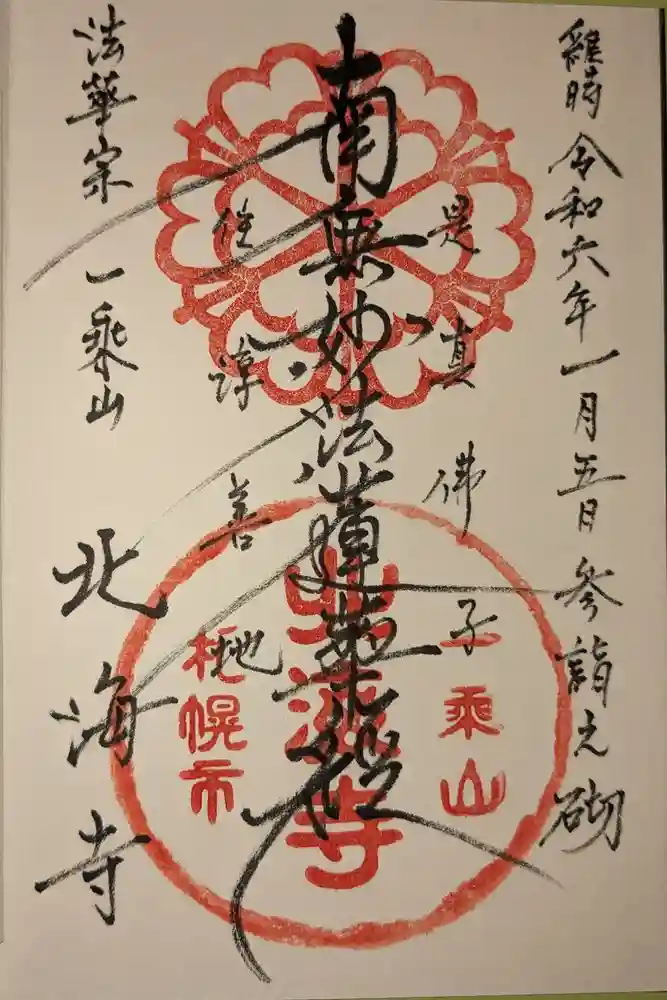 維時 令和六年一月五日 参詣之砌
是真佛子
南無妙法蓮華経
住淳善地
法華宗 一乗山
北海寺
一乗山
北海寺
札幌市